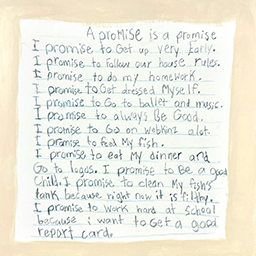 A promise is a promise
I promise to Get up very Early.
I promise to follow our house rules.
I promise to do my homework.
I promise to Get dressed Myself.
I promise to Go to ballet and music.
I promise to always Be Good.
I promise to Go on webkinz alot.
I promise to feed My fish.
I promise to eat My dinner and
Go to logos. I promise to Be a good
Child. I promise to clean My fish's
tank, because right now it is filthy.
I promise to work hard at school
because i want to Get a good
report card.